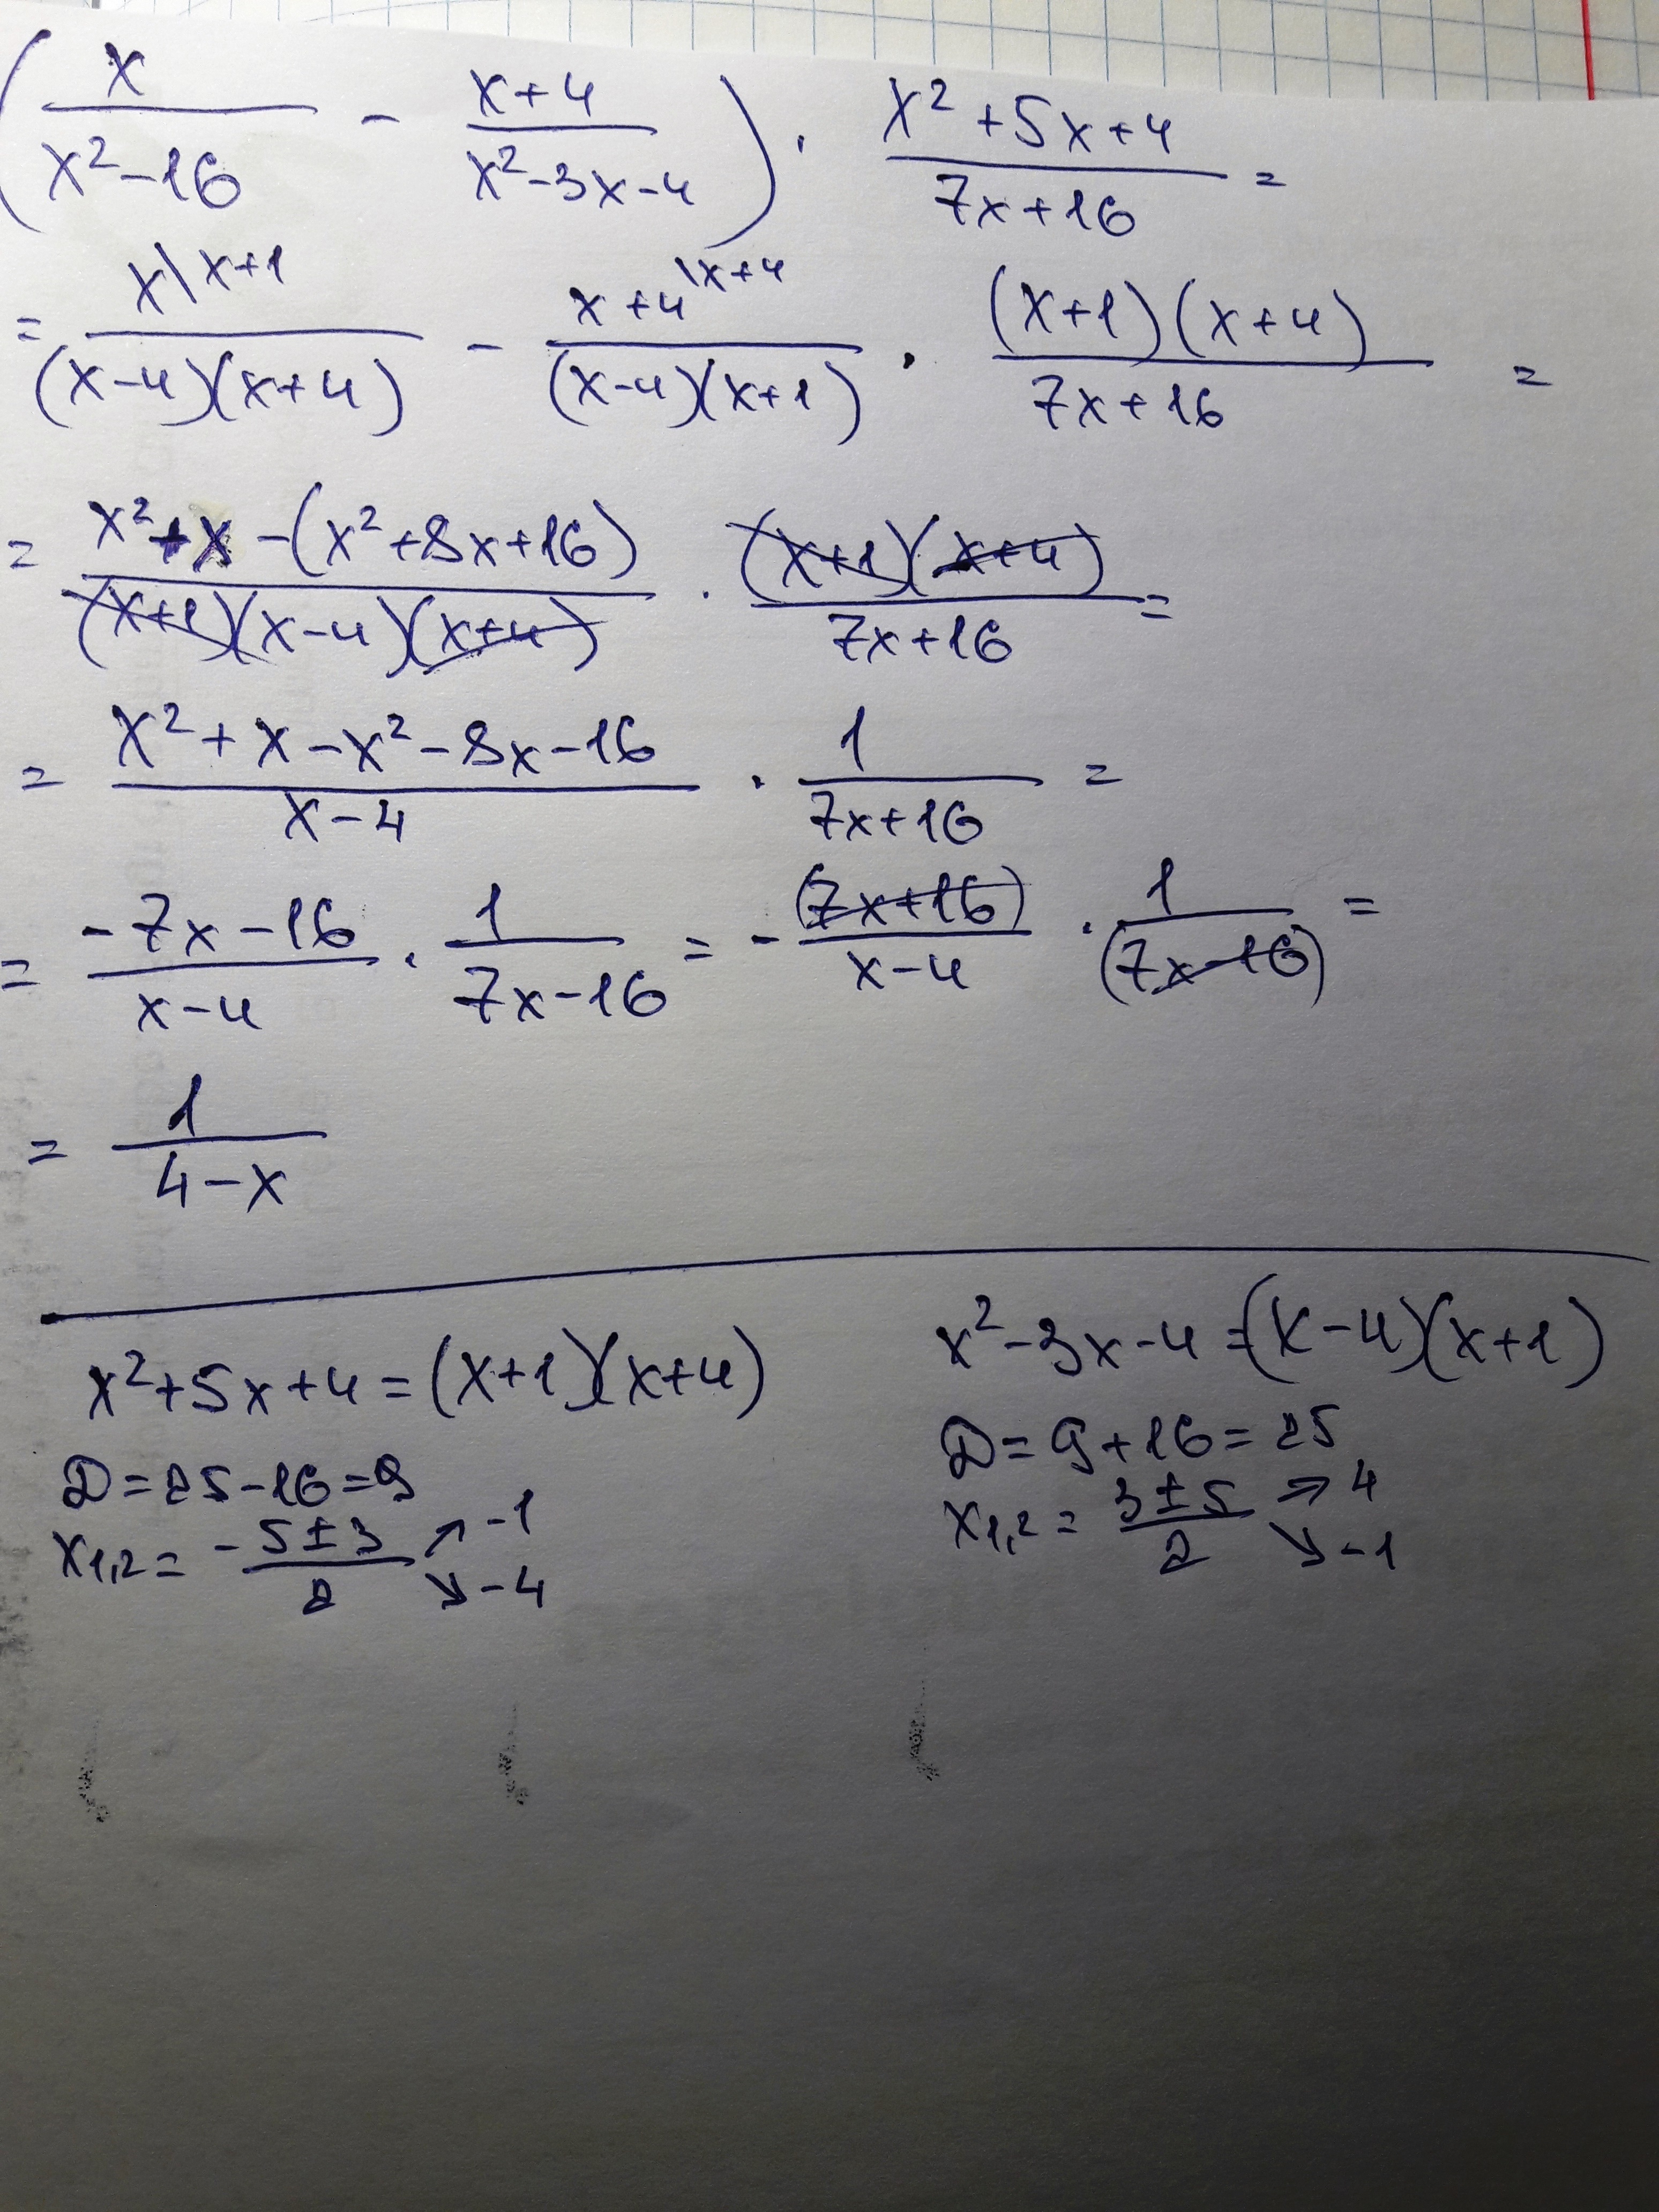 (x/(x²-16) - (x+4)/(x²-3x-4)) · (x²+5x+4)/(7x+16) =
= x\x+1/((x-4)(x+4)) - x+4\x+4/((x-4)(x+1)) · ((x+1)(x+4))/(7x+16) =
= (x²+x-(x²+8x+16))/((x+1)(x-4)(x+4)) · ((x+1)(x+4))/(7x+16) =
= (x²+x-x²-8x-16)/(x-4) · 1/(7x+16) =
= (-7x-16)/(x-4) · 1/(7x-16) = - (7x+16)/(x-4) · 1/(7x-16) =
= 1/(4-x)
x²+5x+4=(x+1)(x+4)
D=25-16=9
x1,2 = (-5±3)/2 ↗ -1 ↘ -4
x²-3x-4=(x-4)(x+1)
D=9+16=25
x1,2 = (3±5)/2 → 4 ↘ -1